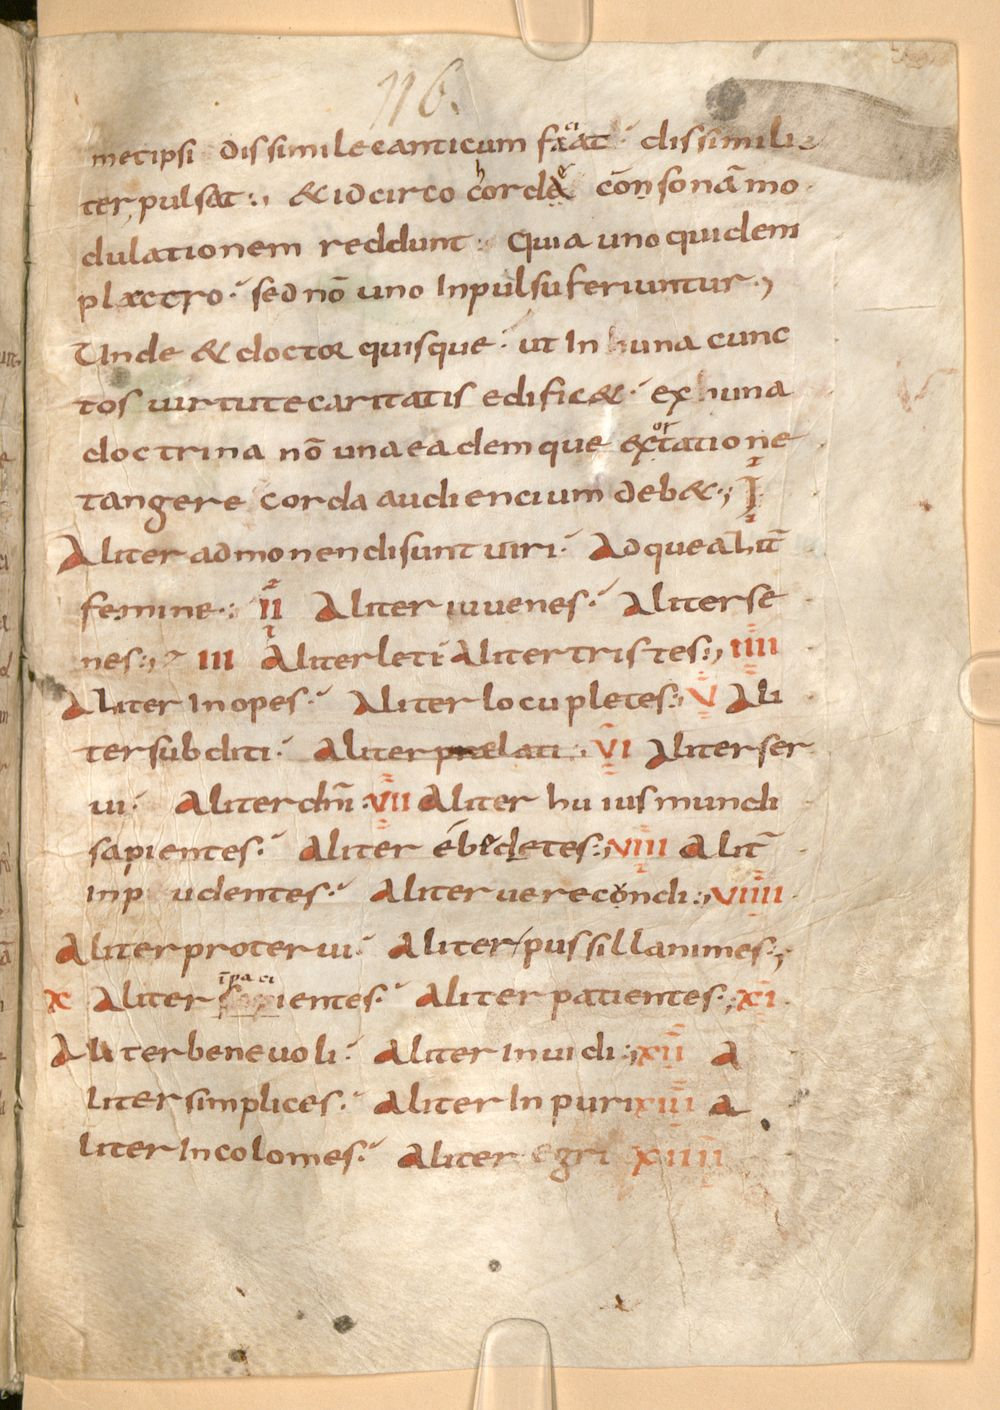 116.
metipsi dissimile canticum faciat· dissimili
ter pulsat:, & idcirco chordae cōn sonā mo
dulationem reddunt: Quia uno quidem
plectro· sed nō uno Inpulsu feriuntur·,
Unde & doctor quisque· ut In huna cunc
tos uirtute caritatis edific&· ex huna
doctrina nō una eademque exortatione
tangere corda audiencium deb&·; I
Aliter admonendi sunt uiri· Adque alit̄
femine·: II Aliter iuuenes· Aliter se
nes:, III Aliter leti· Aliter tristes:, IIII
Aliter Inopes· Aliter locupletes:, V Ali
ter subditi· Aliter prelati:, VI Aliter ser
ui· Aliter dn̄i:, VII Aliter huius mundi
sapientes· Aliter ebedetes:, VIII Alit̄
Inpudentes· Aliter uerecondi:, VIIII
Aliter proterui· Aliter pussillanimes:,
X Aliter īpacientes· Aliter patientes:, XI
Aliter beneuoli· Aliter Inuidi:, XII A
liter simplices· Aliter Inpuri XIII A
liter Incolomes· Aliter Egri XIIII